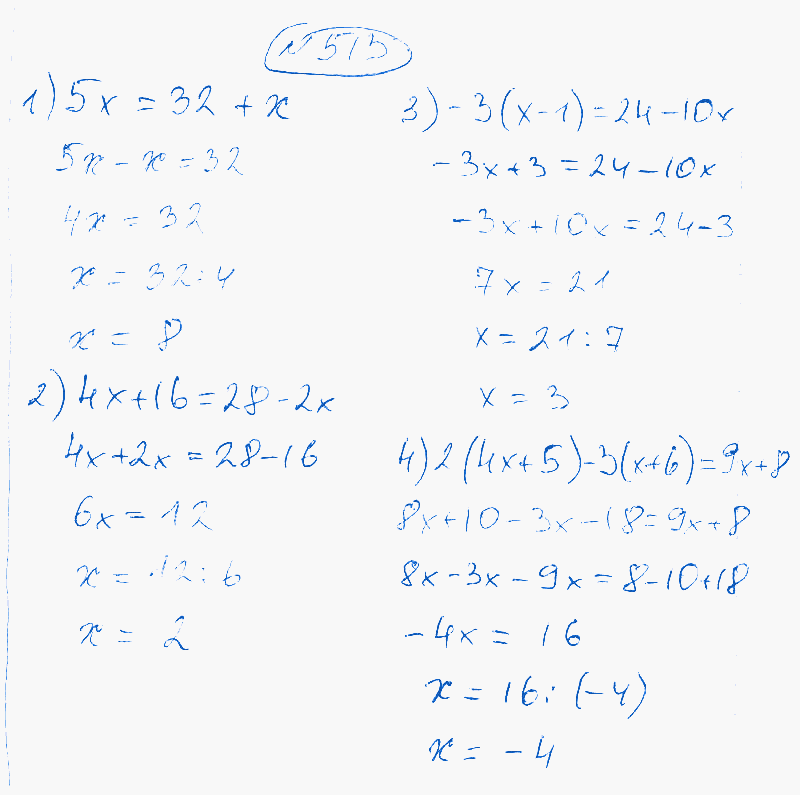 N 513
1) 5x = 32 + x
5x - x = 32
4x = 32
x = 32 : 4
x = 8
2) 4x+16 = 28 - 2x
4x+2x = 28-16
6x = 12
x = 12 : 6
x = 2
3) - 3(x-1) = 24-10x
-3x+3 = 24-10x
-3x+10x = 24-3
7x = 21
x = 21 : 7
x = 3
4) 2(4x+5)-3(x+6)=9x+8
8x+10-3x-18=9x+8
8x-3x-9x=8-10+18
-4x = 16
x = 16 : (-4)
x = -4